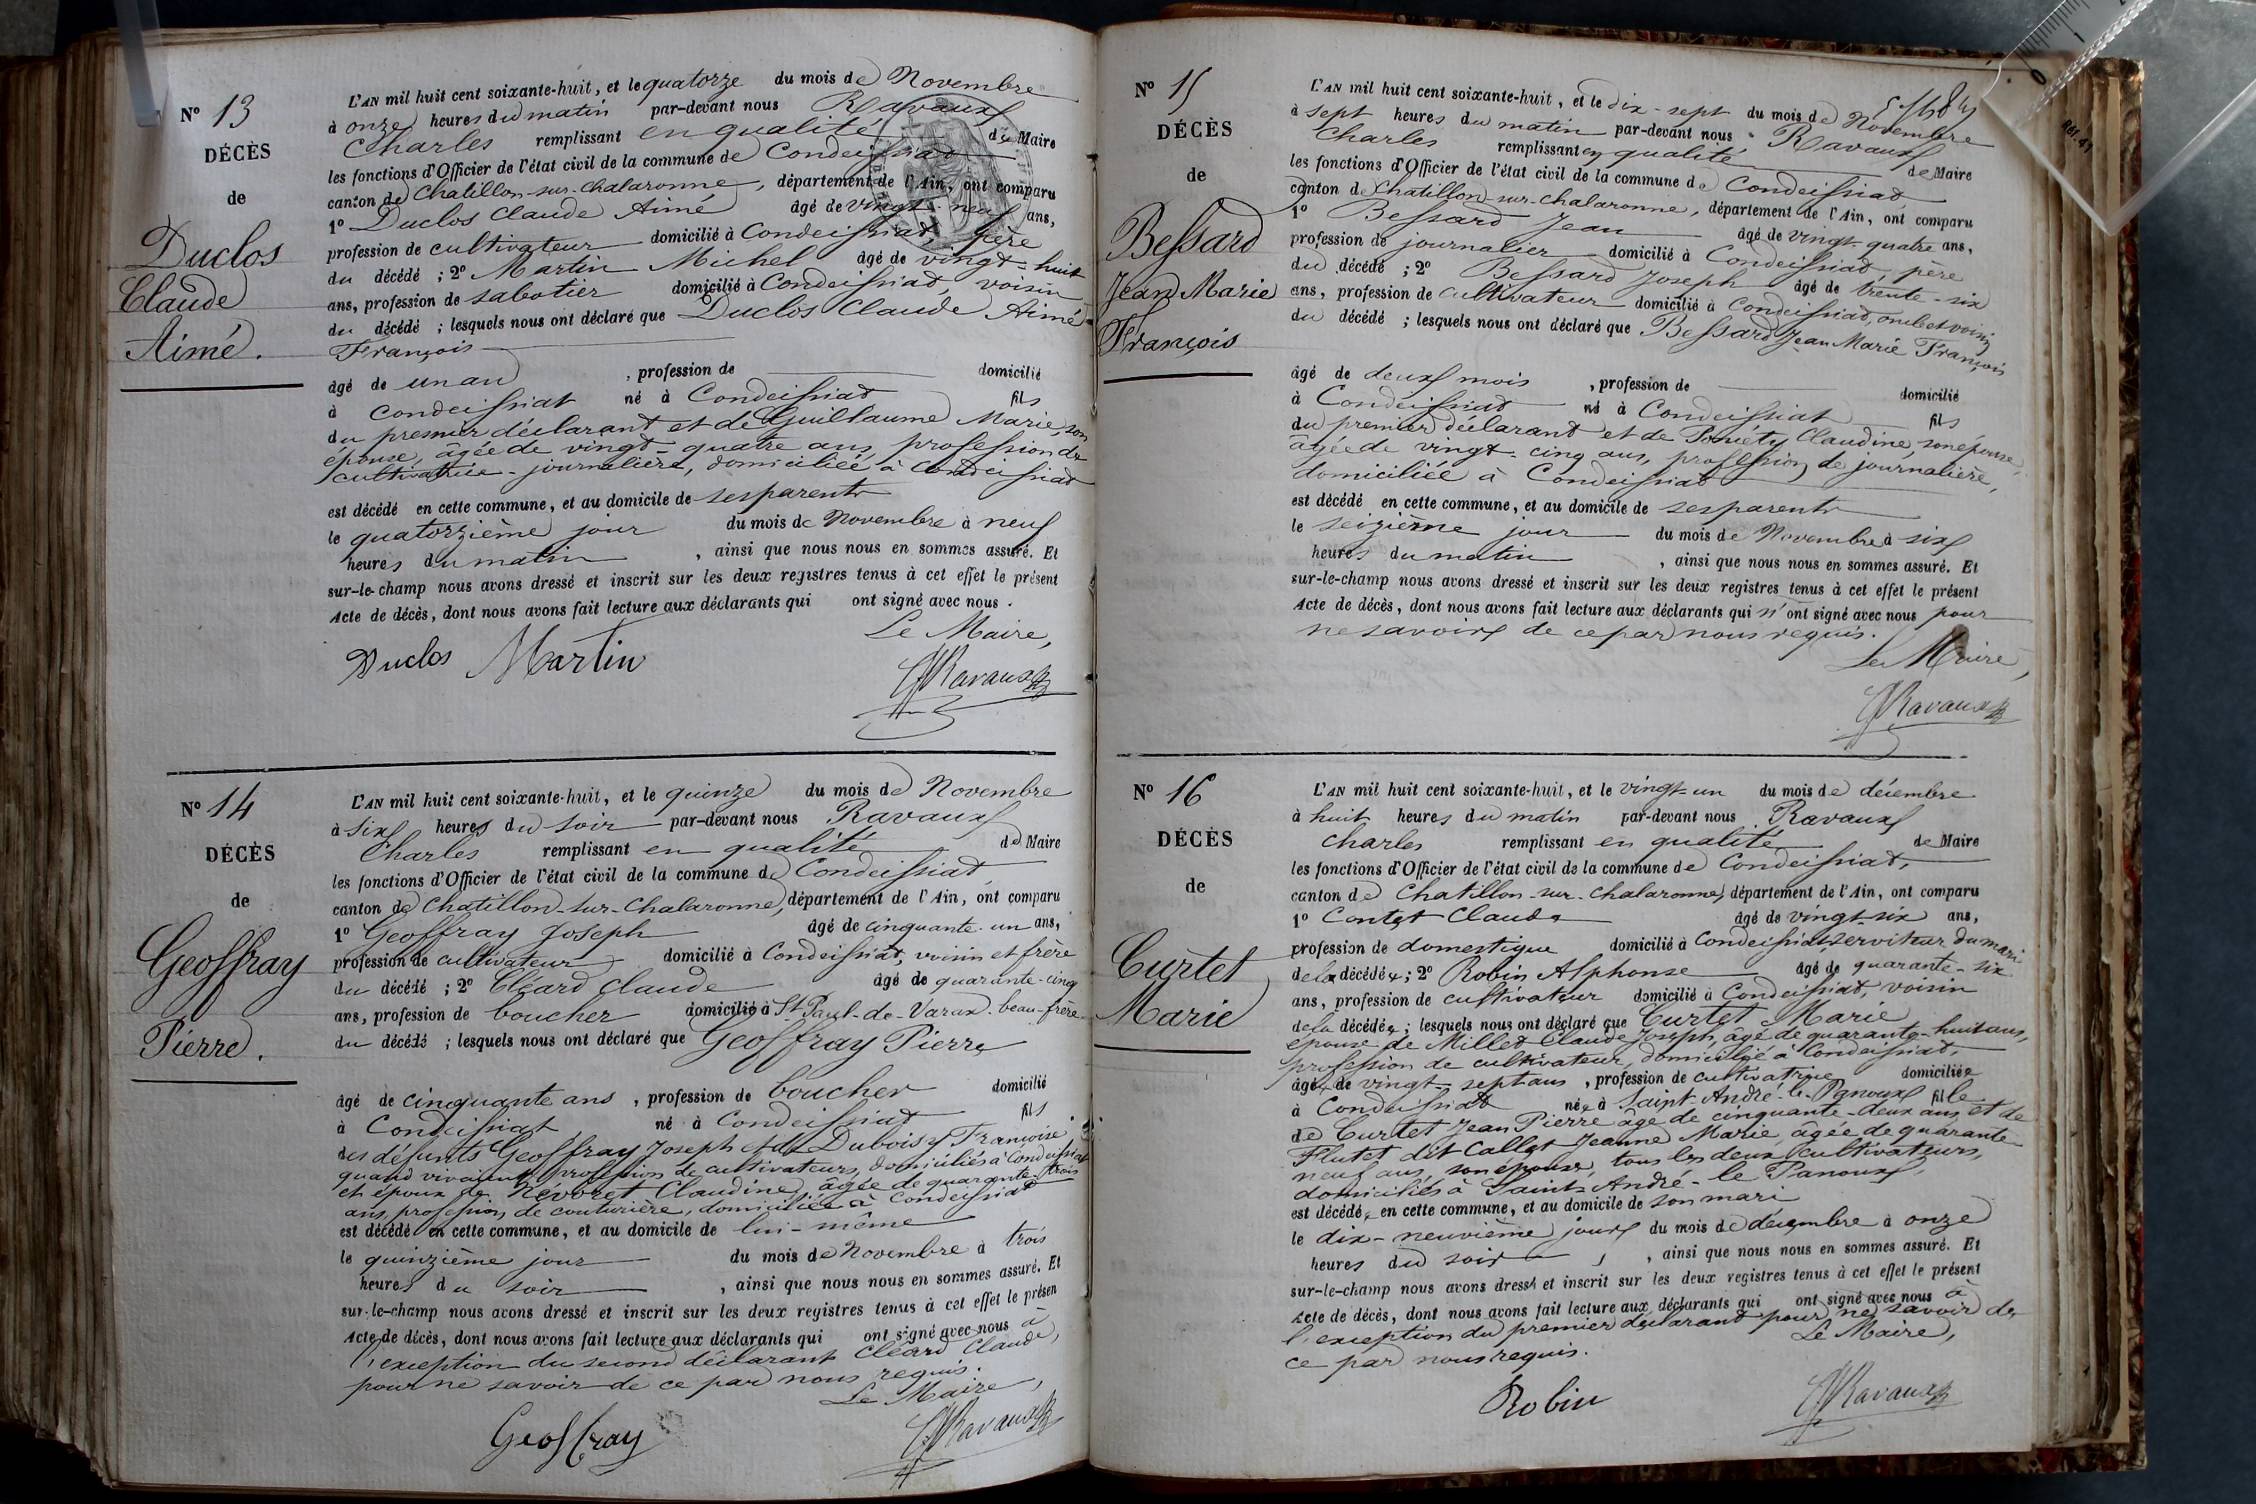 N° 13
DÉCÈS
de
Duclos
Claude
Aimé.
L'AN mil huit cent soixante-huit, et le quatorze du mois de Novembre
à onze heures du matin par-devant nous Ravaux
Charles remplissant en qualité de Maire
les fonctions d'Officier de l'état civil de la commune de Condeissiat
canton de Chatillon-sur-Chalaronne, département de l'Ain, ont comparu
1° Duclos Claude Aimé âgé de vingt-neuf ans,
profession de cultivateur domicilié à Condeissiat, père
du décédé ; 2° Martin Michel âgé de vingt-huit
ans, profession de sabotier domicilié à Condeissiat, voisin
du décédé ; lesquels nous ont déclaré que Duclos Claude Aimé
François
âgé de un an , profession de domicilié
à Condeissiat né à Condeissiat fils
du premier déclarant et de Guillaume Marie, son
épouse, âgée de vingt-quatre ans, profession de
cultivatrice-journalière, domiciliée à Condeissiat
est décédé en cette commune, et au domicile de ses parents
le quatorzième jour du mois de Novembre à neuf
heures du matin , ainsi que nous nous en sommes assuré. Et
sur-le-champ nous avons dressé et inscrit sur les deux registres tenus à cet effet le présent
Acte de décès, dont nous avons fait lecture aux déclarants qui ont signé avec nous.
Le Maire,
Duclos Martin Ravaux
N° 14
DÉCÈS
de
Geoffray
Pierre.
L'AN mil huit cent soixante-huit, et le quinze du mois de Novembre
à six heures du soir par-devant nous Ravaux
Charles remplissant en qualité de Maire
les fonctions d'Officier de l'état civil de la commune de Condeissiat
canton de Chatillon-sur-Chalaronne, département de l'Ain, ont comparu
1° Geoffray Joseph âgé de cinquante-un ans,
profession de cultivateur domicilié à Condeissiat, voisin et frère
du décédé ; 2° Cléard Claude âgé de quarante-cinq
ans, profession de boucher domicilié à St Paul-de-Varax, beau-frère
du décédé ; lesquels nous ont déclaré que Geoffray Pierre
âgé de cinquante ans , profession de boucher domicilié
à Condeissiat né à Condeissiat fils
des défunts Geoffray Joseph et de Dubois Françoise
quand vivaient profession de cultivateurs, domiciliés à Condeissiat
et époux de Névoret Claudine, âgée de quarante-trois
ans, profession de couturière, domiciliée à Condeissiat
est décédé en cette commune, et au domicile de lui-même
le quinzième jour du mois de Novembre à trois
heures du soir , ainsi que nous nous en sommes assuré. Et
sur-le-champ nous avons dressé et inscrit sur les deux registres tenus à cet effet le présen
Acte de décès, dont nous avons fait lecture aux déclarants qui ont signé avec nous à
l'exception du second déclarant Cléard Claude,
pour ne savoir de ce par nous requis.
Le Maire,
Geoffray Ravaux
N° 15
DÉCÈS
de
Bessard
Jean Marie
François
L'AN mil huit cent soixante-huit, et le dix-sept du mois de Novembre
à sept heures du matin par-devant nous Ravaux
Charles remplissant en qualité de Maire
les fonctions d'Officier de l'état civil de la commune de Condeissiat
canton de Chatillon-sur-Chalaronne, département de l'Ain, ont comparu
1° Bessard Jean âgé de vingt-quatre ans,
profession de journalier domicilié à Condeissiat, père
du décédé ; 2° Bessard Joseph âgé de trente-six
ans, profession de cultivateur domicilié à Condeissiat, oncle et voisin
du décédé ; lesquels nous ont déclaré que Bessard Jean Marie François
âgé de deux mois , profession de domicilié
à Condeissiat né à Condeissiat fils
du premier déclarant et de Claudine, son épouse,
âgée de vingt-cinq ans, profession de journalière,
domiciliée à Condeissiat
est décédé en cette commune, et au domicile de ses parents
le seizième jour du mois de Novembre à six
heures du matin , ainsi que nous nous en sommes assuré. Et
sur-le-champ nous avons dressé et inscrit sur les deux registres tenus à cet effet le présent
Acte de décès, dont nous avons fait lecture aux déclarants qui n'ont signé avec nous pour
ne savoir de ce par nous requis.
Le Maire,
Ravaux
N° 16
DÉCÈS
de
Curtet
Marie
L'AN mil huit cent soixante-huit, et le vingt-un du mois de décembre
à huit heures du matin par-devant nous Ravaux
Charles remplissant en qualité de Maire
les fonctions d'Officier de l'état civil de la commune de Condeissiat,
canton de Chatillon-sur-Chalaronne, département de l'Ain, ont comparu
1° Contet Claude âgé de vingt-six ans,
profession de domestique domicilié à Condeissiat serviteur du mari
de la décédée ; 2° Robin Alphonse âgé de quarante-six
ans, profession de cultivateur domicilié à Condeissiat, voisin
de la décédée ; lesquels nous ont déclaré que Curtet Marie
épouse de Millet Claude Joseph, âgé de quarante-huit ans,
profession de cultivateur, domicilié à Condeissiat,
âgée de vingt-sept ans , profession de cultivatrice domiciliée
à Condeissiat née à Saint-André-le-Panoux fille
de Curtet Jean Pierre âgé de cinquante-deux ans et de
Flutet dit Callet Jeanne Marie, âgée de quarante-
neuf ans, son épouse, tous les deux cultivateurs,
domiciliés à Saint-André-le-Panoux,
est décédée en cette commune, et au domicile de son mari
le dix-neuvième jour du mois de décembre à onze
heures du soir , ainsi que nous nous en sommes assuré. Et
sur-le-champ nous avons dressé et inscrit sur les deux registres tenus à cet effet le présent
Acte de décès, dont nous avons fait lecture aux déclarants qui ont signé avec nous à
l'exception du premier déclarant pour ne savoir de
ce par nous requis.
Le Maire,
Robin Ravaux
0
Réf. 41